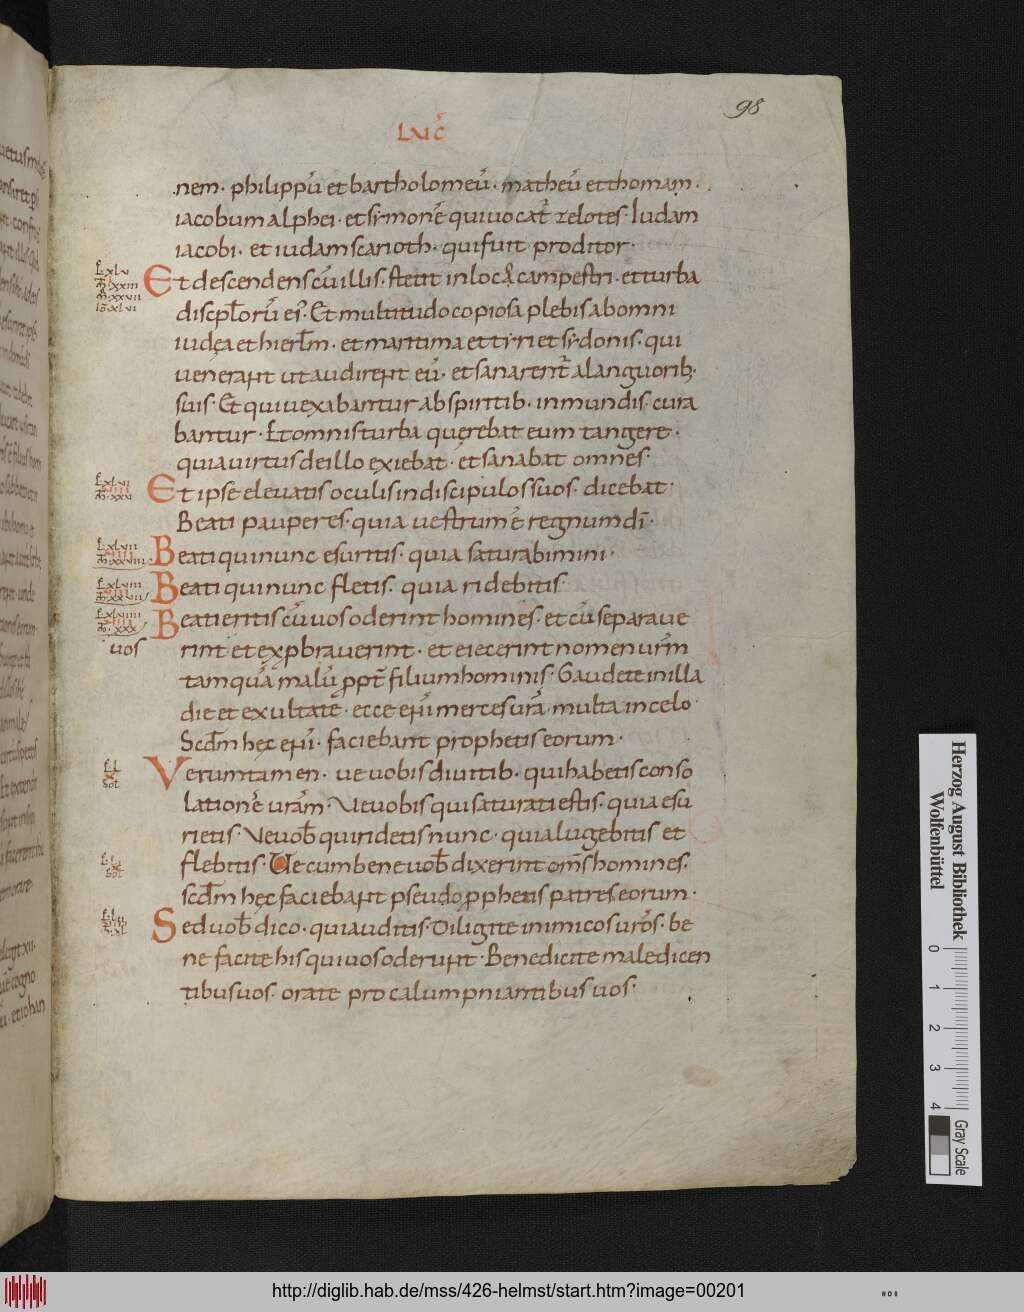 98
LUC̄
nem· philippū et bartholomeū· matheū et thomam·
iacobum alphei· et simonē qui uocat̄ zelotes· Iudam
iacobi· et iudam scarioth· qui fuit proditor·
Et descendens cū illis· stetit in loco campestri· et turba
discip̄lorū eī· Et multitudo copiosa plebis ab omni
iudęa et hierl̄m· et maritima et tyri et sydonis· qui
uenerant ut audirent eū· et sanarent̄ a languorib;
suis· Et qui uexabantur ab spiritib· inmundis· cura
bantur· Et omnis turba querebat eum tangere·
quia uirtus de illo exiebat· et sanabat omnes·
Et ipse eleuatis oculis in discipulos suos· dicebat·
Beati pauperes· quia uestrum ē regnum dī·
Beati qui nunc esuritis· quia saturabimini·
Beati qui nunc fletis· quia ridebitis·
Beati eritis cū uos oderint homines· et cū separaue
uos rint et exp̱brauerint· et eiecerint nomen ur̄m
tamquā malū p̱pt̄ filium hominis· Gaudete in illa
die et exultate· ecce enī merces ur̄a· multa in celo·
Scd̄m hęc enī· faciebant prophetis eorum·
Verumtamen· ue uobis diuitib· qui habetis conso
lationē ur̄am· Ve uobis qui saturati estis· quia esu
rietis· Ve uob̄ qui ridetis nunc· quia lugebitis et
flebitis· Ue cum bene uob̄ dixerint om̄s homines·
scd̄m hęc faciebant pseudop̱phetis patres eorum·
Sed uob̄ dico· qui auditis· Diligite inimicos ur̄os· be
ne facite his qui uos oderunt· Benedicite maledicen
tibus uos· orate pro calumpniantibus uos·
Herzog August Bibliothek
Wolfenbüttel
0 1 2 3 4
Gray Scale
http://diglib.hab.de/mss/426-helmst/start.htm?image=00201